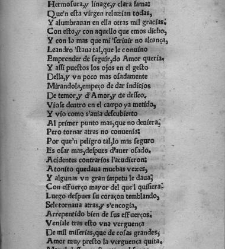 Hermosura, y linage, y clara fama:
Qu'en esta virgen reluzían todas,
Y alumbrauan en ella otras mil gracias.
Con esto, y con aquello que emos dicho,
Y con lo mas que mi scriuir no alcança,
Leandro staua tal, que le conuino
Emprender de seguir, do Amor queria,
Y assi puestos los ojos en el gesto
Della, y vn poco mas osadamente
Mirandola, empeço de dar indicios
De temor, y d'Amor, y de desseo,
Viose dentro en el campo ya metido,
Y vio como s'auia descubierto
Al primer punto mas, que no deuiera,
Pero tornar atras no conuenia:
Por qu'en peligro tal, lo mas seguro
Es osar mas, despues d'auer osado,
Accidentes contrarios l'acudieron:
Atonito quedaua muchas vezes,
Y algunas vn gran impetu le daua
Con esfuerço mayor del que'l quisiera:
Luego despues su coraçon temblando,
Se le tornaua atras, y s'encogia,
Arrepentido bien de sus esfuerços,
Venia le tras esto vna verguença
De mil miserias, que do nas grandes,
Amor muy presto la verguença quita,